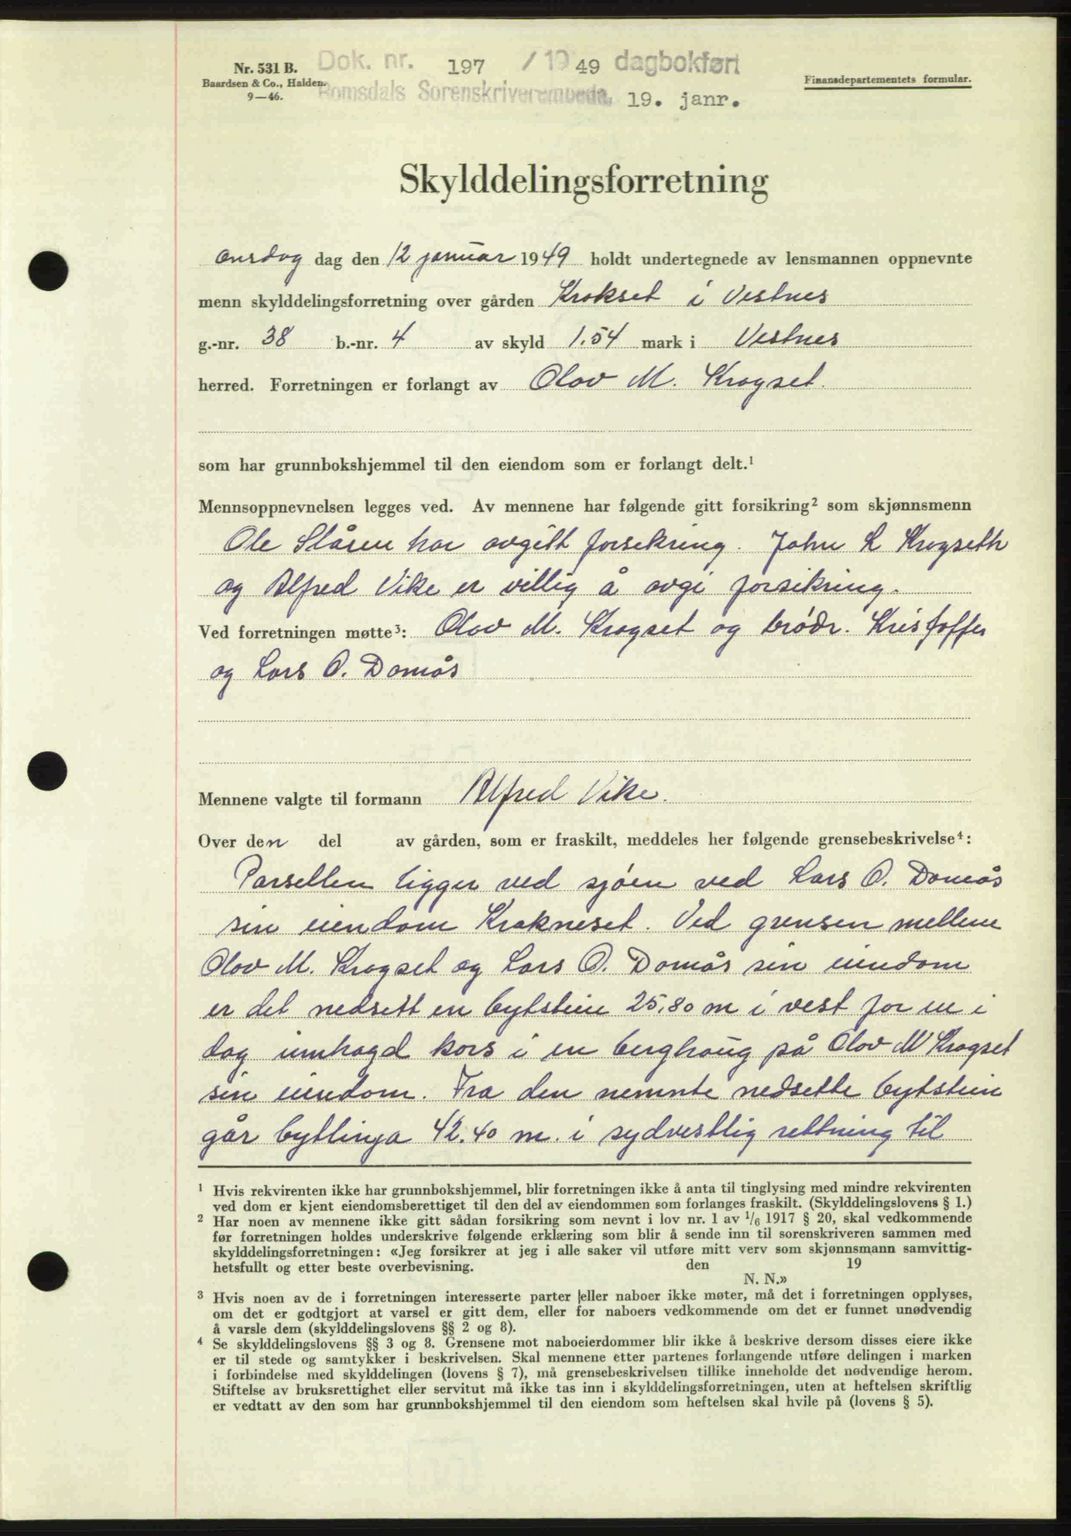 Nr. 531 B.
Baardsen & Co., Halden.
9—46.
Dok. nr. 197 / 1949 dagbokført
Romsdals Sorenskriverembede, 19. janr.
Finansdepartementets formular.
Skylddelingsforretning
onsdag dag den 12 januar 1949 holdt undertegnede av lensmannen oppnevnte
menn skylddelingsforretning over gården Krokset i Vestnes
g.-nr. 38 b.-nr. 4 av skyld 1.54 mark i Vestnes
herred. Forretningen er forlangt av Olav M. Krogset.
som har grunnbokshjemmel til den eiendom som er forlangt delt.¹
Mennsoppnevnelsen legges ved. Av mennene har følgende gitt forsikring² som skjønnsmenn
Ole Slåen har avgitt forsikring. John K Krogseth
og Alfred Vike er villig å avgi forsikring.
Ved forretningen møtte³: Olav M. Krogset og brødr. Kristoffer
og Lars O. Domås
Mennene valgte til formann Alfred Vike.
Over den del av gården, som er fraskilt, meddeles her følgende grensebeskrivelse⁴:
Parsellen ligger ved sjøen ved Lars O. Domås
sin eiendom Krokneset. Ved grensen mellem
Olav M. Krogset og Lars O. Domås sin eiendom
er det nedsett en bytstein 25,80 m i vest for en i
dag innhogd kors i en berghaug på Olav M Krogset
sin eiendom. Fra den nemnte nedsette bytstein
går bytlinja 42.40 m. i sydvestlig rettning til
¹ Hvis rekvirenten ikke har grunnbokshjemmel, blir forretningen ikke å anta til tinglysing med mindre rekvirenten
ved dom er kjent eiendomsberettiget til den del av eiendommen som forlanges fraskilt. (Skylddelingslovens § 1.)
² Har noen av mennene ikke gitt sådan forsikring som nevnt i lov nr. 1 av 1/6 1917 § 20, skal vedkommende
før forretningen holdes underskrive følgende erklæring som blir å sende inn til sorenskriveren sammen med
skylddelingsforretningen: «Jeg forsikrer at jeg i alle saker vil utføre mitt verv som skjønnsmann samvittig-
hetsfullt og etter beste overbevisning. den 19
N. N.»
³ Hvis noen av de i forretningen interesserte parter eller naboer ikke møter, må det i forretningen opplyses,
om det er godtgjort at varsel er gitt dem, eller for naboers vedkommende om det er funnet unødvendig
å varsle dem (skylddelingslovens §§ 2 og 8).
⁴ Se skylddelingslovens §§ 3 og 8. Grensene mot naboeierdommer blir ikke å beskrive dersom disses eiere ikke
er til stede og samtykker i beskrivelsen. Skal mennene etter partenes forlangende utføre delingen i marken
i forbindelse med skylddelingen (lovens § 7), må grensebeskrivelsen tillike inneholde det nødvendige herom.
Stiftelse av bruksrettighet eller servitut må ikke tas inn i skylddelingsforretningen, uten at heftelsen skriftlig
er vedtatt av den som har grunnbokshjemmel til den eiendom som heftelsen skal hvile på (lovens § 5).